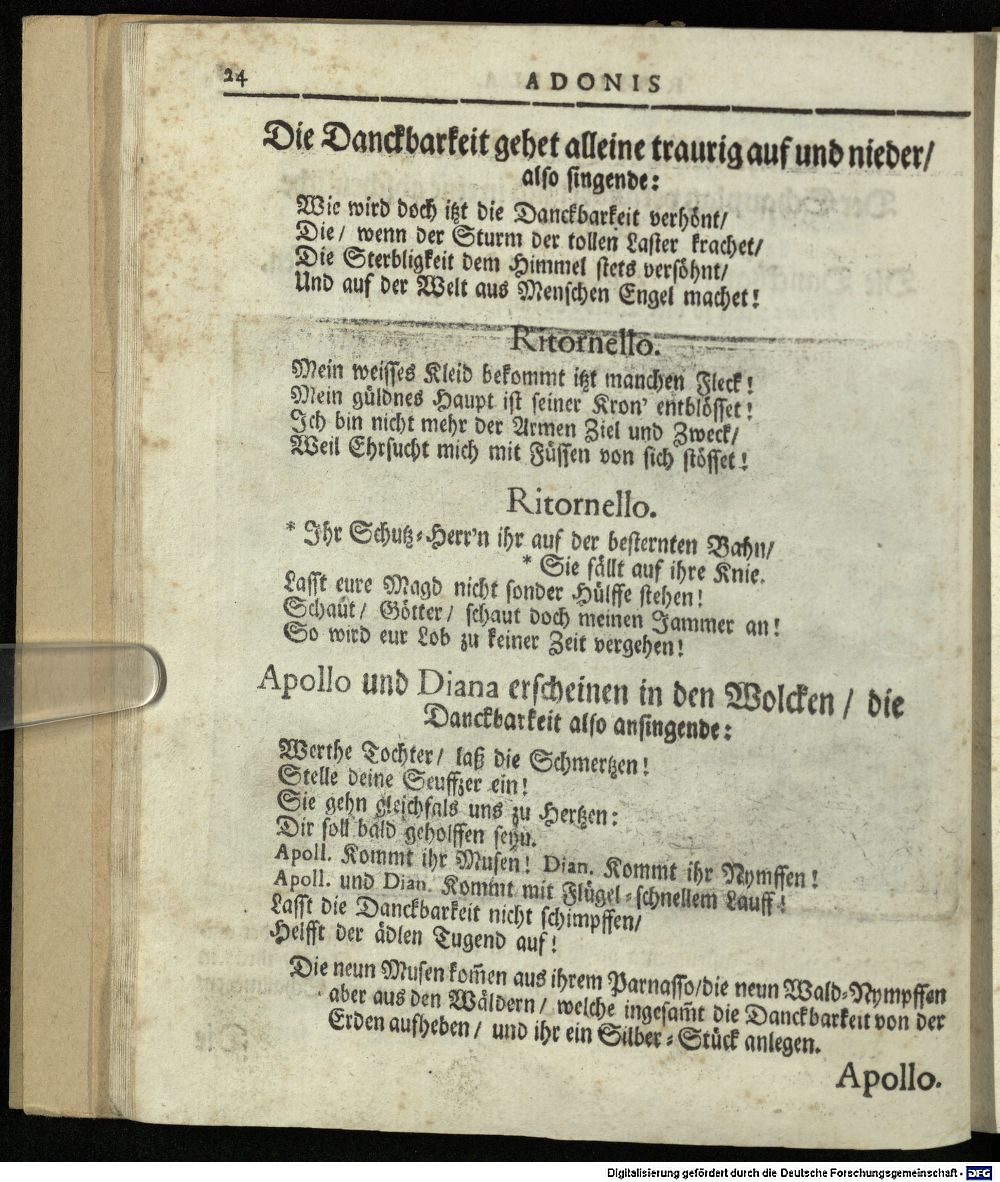 24
ADONIS
Die Danckbarkeit gehet alleine traurig auf und nieder/
also singende:
Wie wird doch itzt die Danckbarkeit verhönt/
Die/ wenn der Sturm der tollen Laster krachet/
Die Sterbligkeit dem Himmel stets versöhnt/
Und auf der Welt aus Menschen Engel machet!
Ritornello.
Mein weisses Kleid bekommt itzt manchen Fleck!
Mein güldnes Haupt ist seiner Kron' entblösset!
Ich bin nicht mehr der Armen Ziel und Zweck/
Weil Ehrsucht mich mit Füssen von sich stösset!
Ritornello.
* Ihr Schutz-Herr'n ihr auf der besternten Bahn/
* Sie fällt auf ihre Knie.
Lasst eure Magd nicht sonder Hülffe stehen!
Schaut/ Götter/ schaut doch meinen Jammer an!
So wird eur Lob zu keiner Zeit vergehen!
Apollo und Diana erscheinen in den Wolcken/ die
Danckbarkeit also ansingende:
Werthe Tochter/ laß die Schmertzen!
Stelle deine Seuffzer ein!
Sie gehn gleichfals uns zu Hertzen:
Dir soll bald geholffen seyn.
Apoll. Kommt ihr Musen! Dian. Kommt ihr Nymffen!
Apoll. und Dian. Kommt mit Flügel-schnellem Lauff!
Lasst die Danckbarkeit nicht schimpffen/
Helfft der ädlen Tugend auf!
Die neun Musen kom̃en aus ihrem Parnasso/die neun Wald-Nympffen
aber aus den Wäldern/ welche ingesam̃t die Danckbarkeit von der
Erden aufheben/ und ihr ein Silber-Stück anlegen.
Apollo.
Digitalisierung gefördert durch die Deutsche Forschungsgemeinschaft - DFG